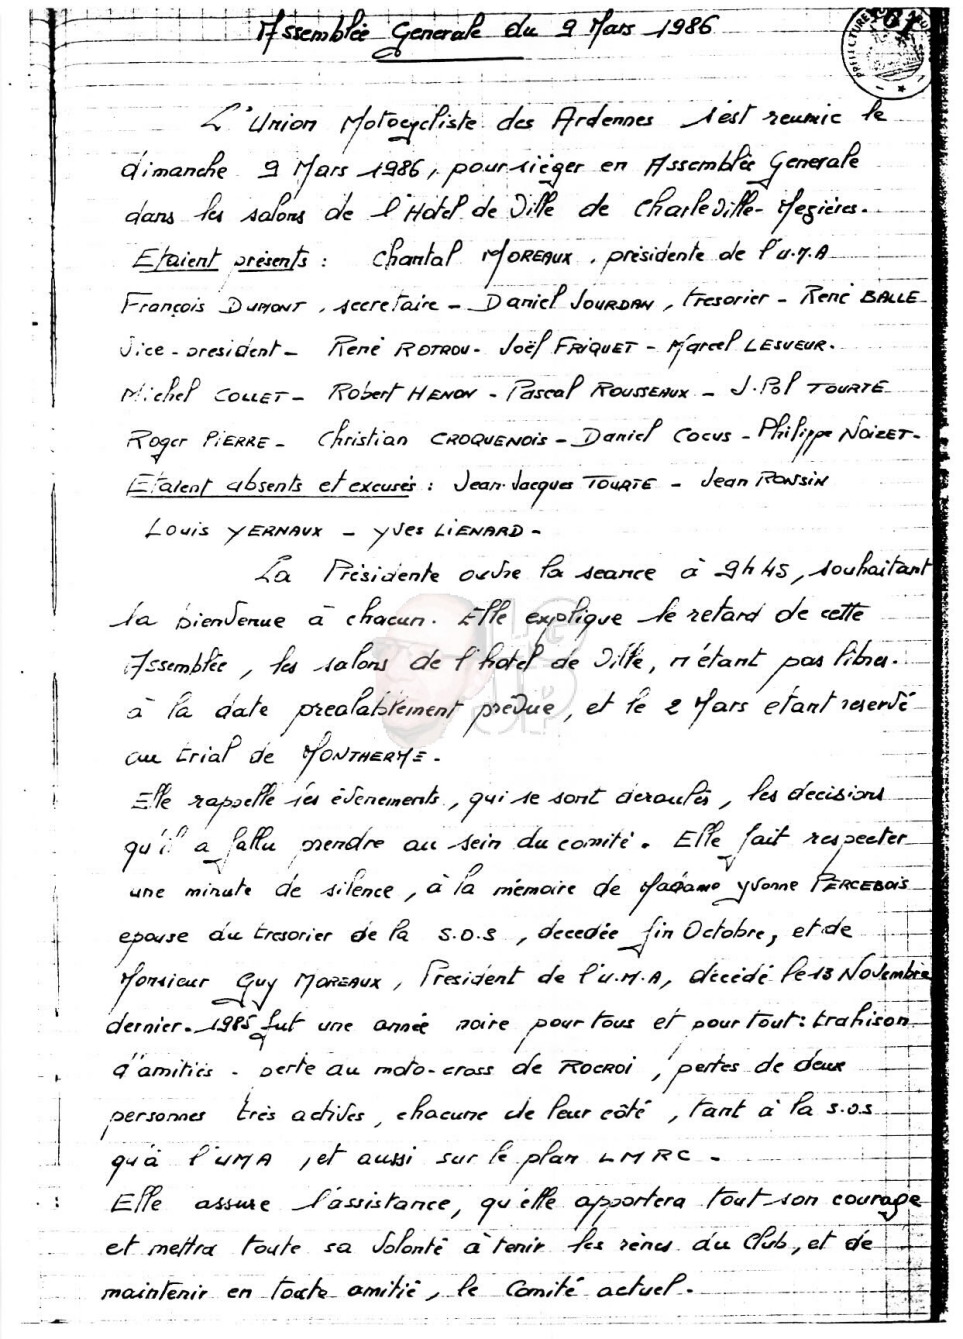 Assemblée Generale du 9 Mars 1986
L'Union Motocycliste des Ardennes s'est reunie le
dimanche 9 Mars 1986, pour sièger en Assemblée Generale
dans les salons de l'Hotel de Ville de Charleville-Mezières.
Etaient présents : Chantal MOREAUX, présidente de l'U.M.A
François DUMONT, secretaire - Daniel JOURDAN, tresorier - René BALLE
Vice-president - René ROTROU - Joël FRIQUET - Marcel LESUEUR.
Michel COLLET - Robert HENON - Pascal ROUSSEAUX - J.Pol TOURTE
Roger PIERRE - Christian CROQUENOIS - Daniel COCUS - Philippe NOIZET -
Etaient absents et excusés : Jean-Jacques TOURTE - Jean RONSIN
Louis YERNAUX - Yves LIENARD -
La Présidente ouvre la seance à 9h45, souhaitant
la bienvenue à chacun. Elle explique le retard de cette
Assemblée, les salons de l'hotel de Ville, n'étant pas libres.
à la date prealablement prévue, et le 2 Mars etant reservé
au trial de MONTHERME -
Elle rappelle les évènements, qui se sont deroulés, les decisions
qu'il a fallu prendre au sein du comité. Elle fait respecter
une minute de silence, à la mémoire de Madame Yvonne PERCEBOIS
epouse du tresorier de la S.O.S, decedée fin Octobre, et de
Monsieur Guy MOREAUX, President de l'U.M.A, decédé le 13 Novembre
dernier. 1985 fut une année noire pour tous et pour tout : trahison
d'amitiés - perte au moto-cross de ROCROI, pertes de deux
personnes très actives, chacune de leur côté, tant à la S.O.S
qu'à l'UMA, et aussi sur le plan LMRC -
Elle assure l'assistance, qu'elle apportera tout son courage
et mettra toute sa volonté à tenir les rênes du Club, et de
maintenir en toute amitié, le Comité actuel.